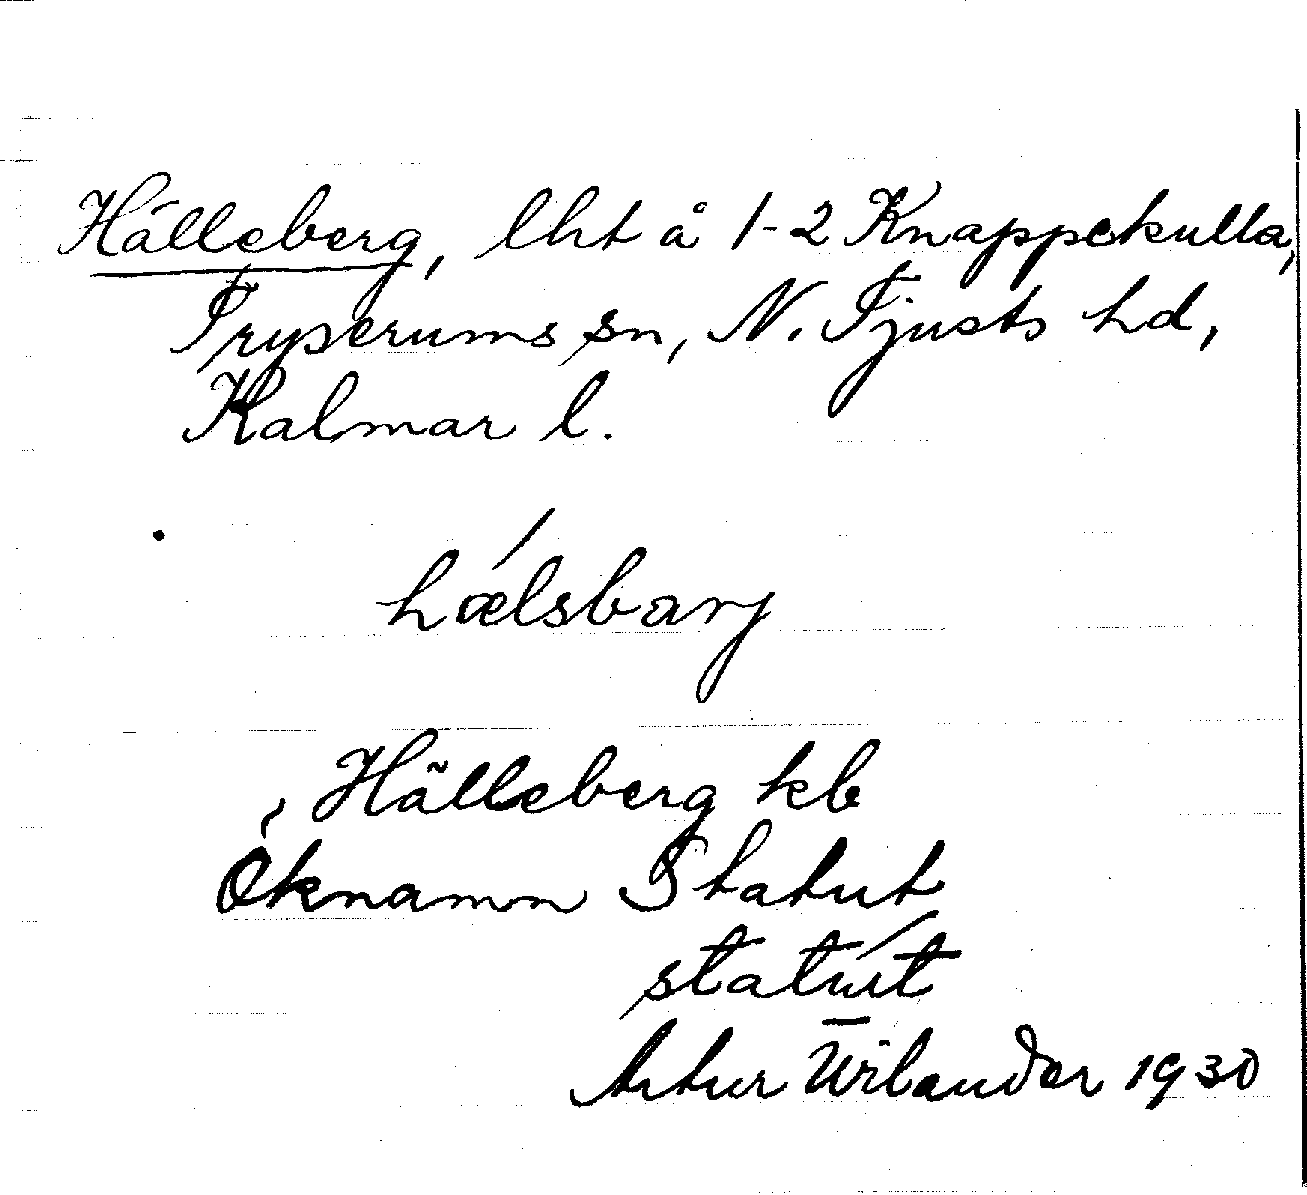 Hälleberg, lht å 1-2 Knappekulla,
Tryserums sn, N. Tjusts hd,
Kalmar l.
hǽlsbarj
Hälleberg kb
Öknamn Statut
statút
Artur Wilander 1930